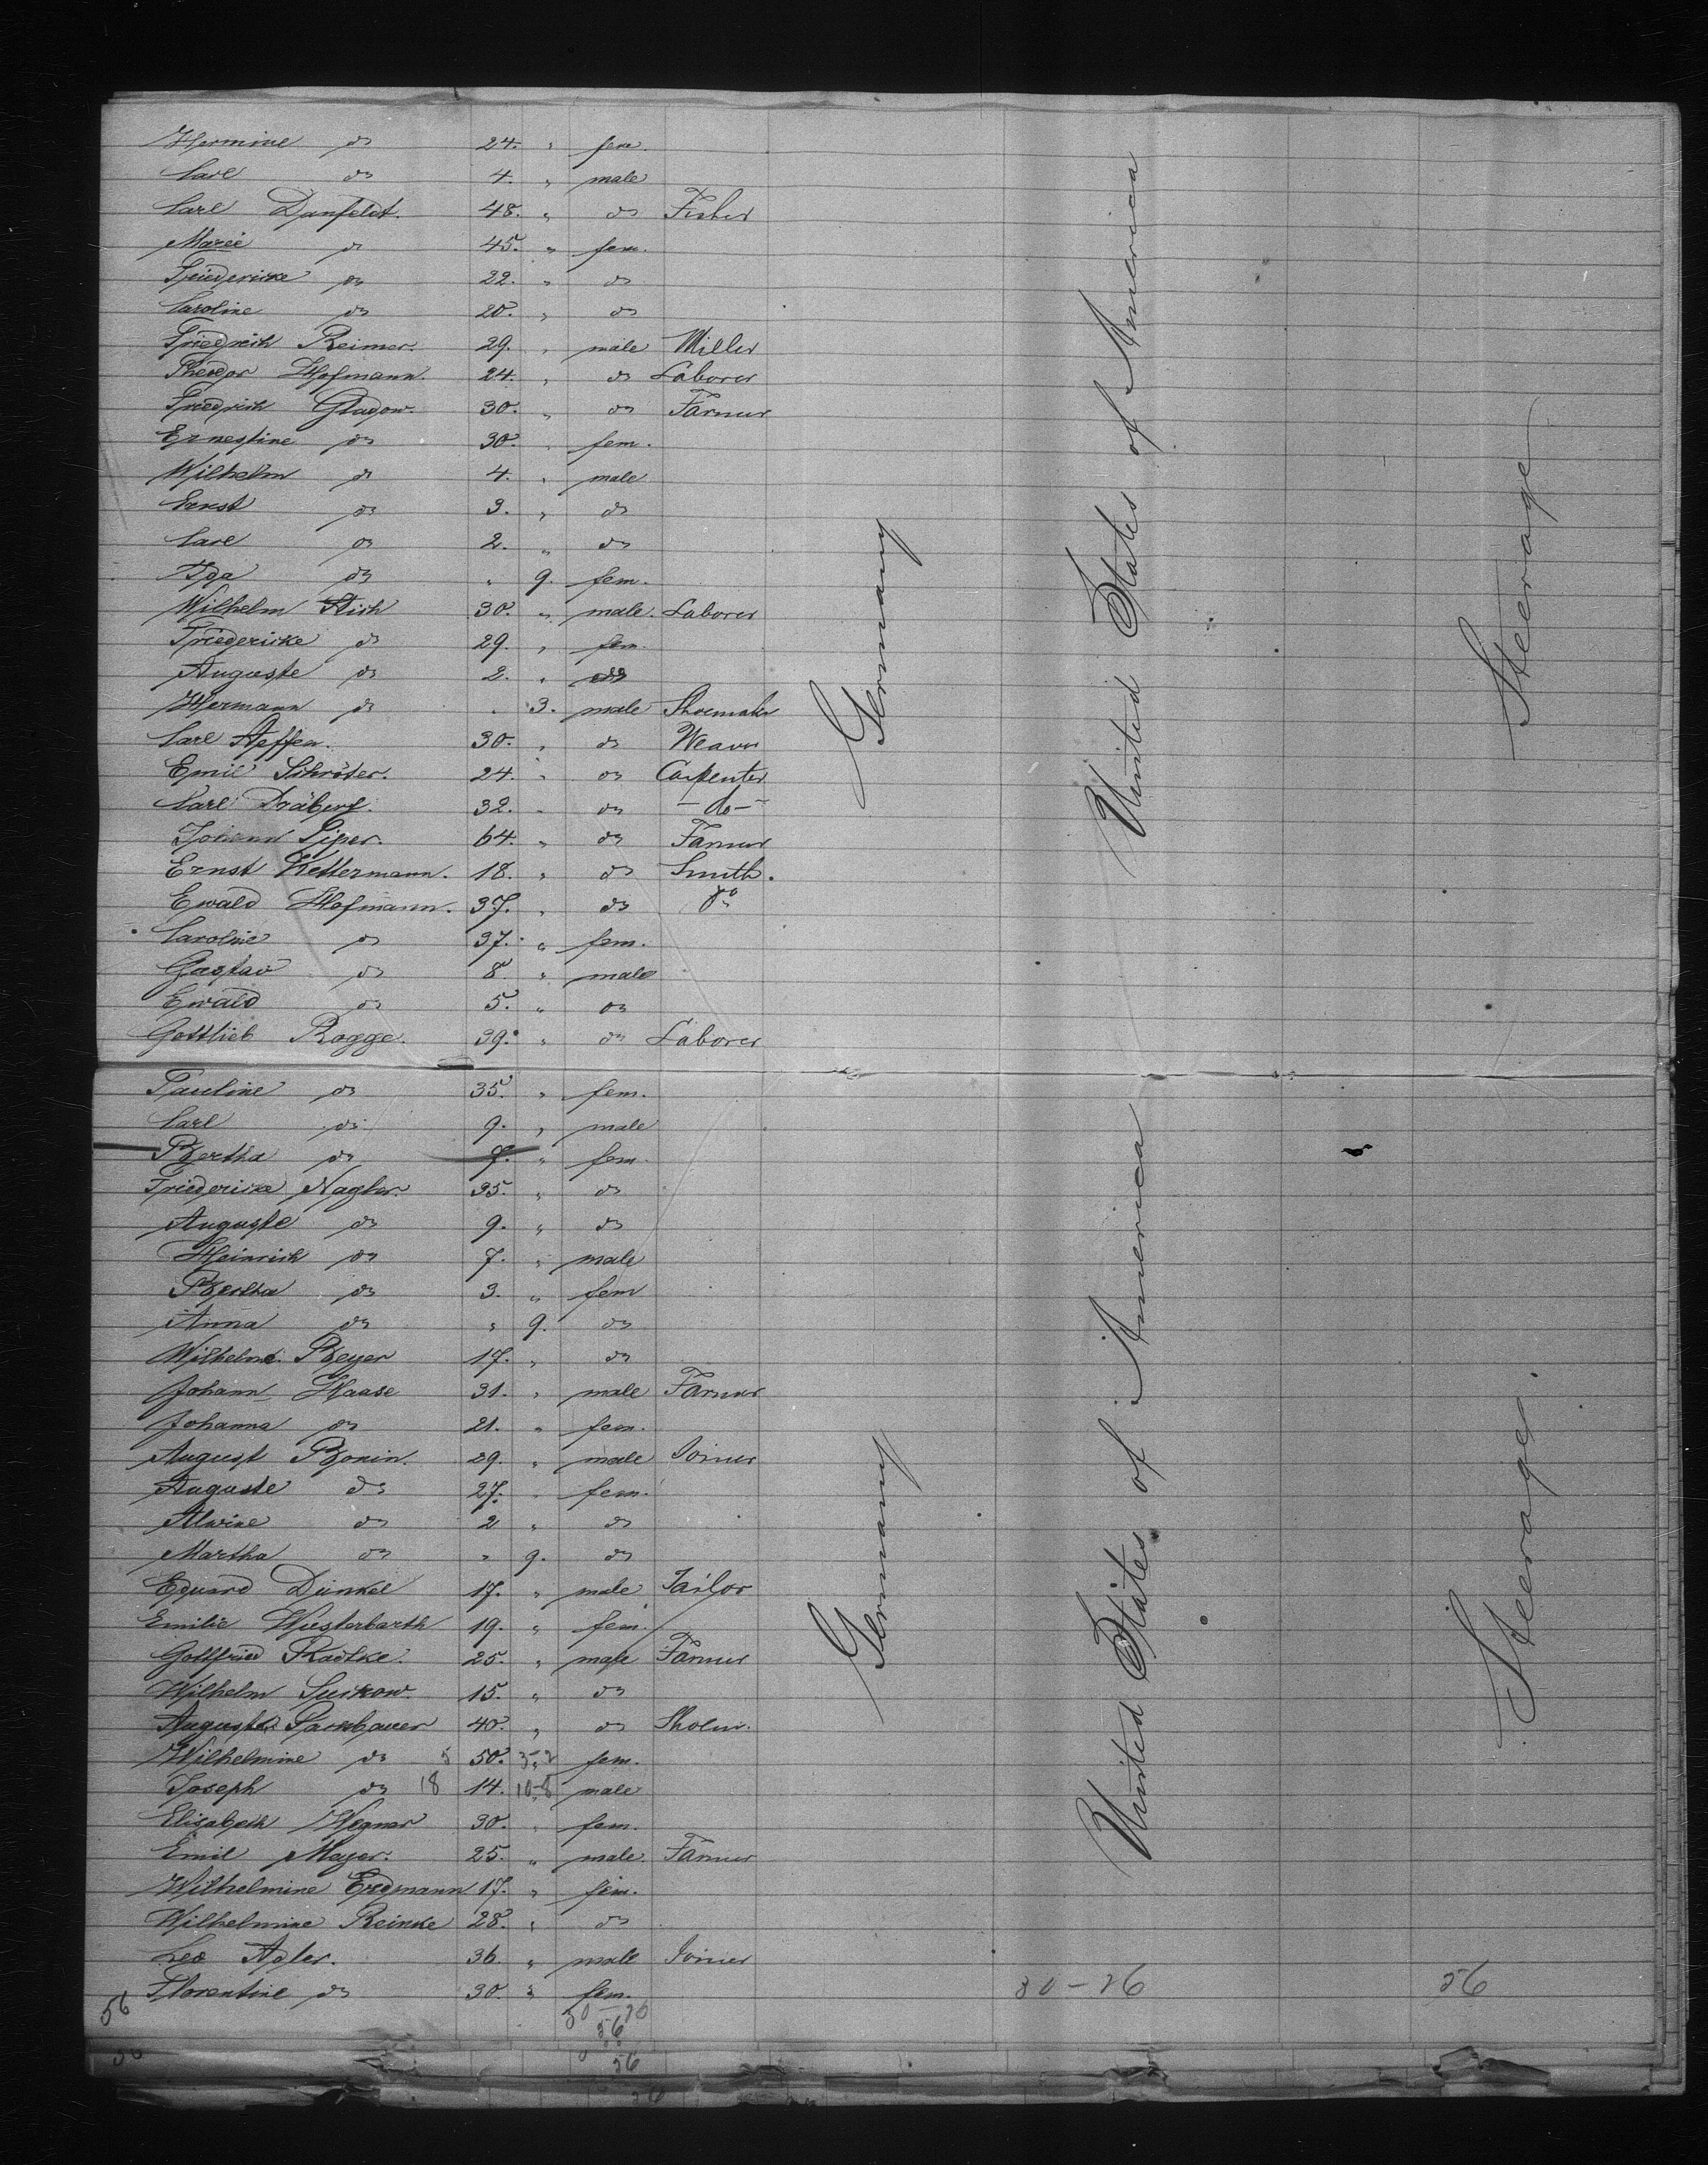 Hermine do 24. " fem.
Carl do 4. " male
Carl Danfeldt. 48. " do Fisher
Marie do 45. " fem.
Friedericke do 22. " do
Caroline do 20. " do
Friedrich Reimer. 29. " male Miller
Theodor Hofmann. 24. " do Laborer
Friedrich Gladow. 30. " do Farmer
Ernestine do 30. " fem.
Wilhelm do 4. " male
Ernst do 3. " do
Carl do 2. " do
Ida do " 9. fem.
Wilhelm 30. " male. Laborer
Friedericke do 29. " fem.
Auguste do 2. " do
Hermann do " 3. male Shoemaker
Carl Aeffen. 30. " do Weaver
Emil Schröter. 24. " do Carpenter
Carl Dräberg. 32. " do - do -
Johann Piper. 64. " do Farmer
Ernst Kettermann. 18. " do Smith.
Ewald Hofmann. 37. " do do
Caroline do 37. " fem.
Gustav do 8. " male
Ewald do 5. " do
Gottlieb Rogge. 39. " do Laborer
Pauline do 35. " fem.
Carl do 9. " male
Bertha do 7. " fem.
Friedericke Nagler. 35. " do
Auguste do 9. " do
Heinrich do 7. " male
Bertha do 3. " fem
Anna do " 9. do
Wilhelme. Beyer 17. " do
Johann Haase 31. " male Farmer
Johanna do 21. " fem.
August Bonin. 29. " male Joiner
Auguste do 27. " fem.
Alwine do 2 " do
Martha do " 9. do
Eduard Dünkel 17. " male Tailor
Emilie Wüsterbarth 19. " fem.
Gottfried Radtke. 25. " male Farmer
Wilhelm Suckow. 15. " do
August Packhauer 40. " do Shoem.
Wilhelmine do 5 50. 5.2 fem.
Joseph do 18 14. 10-8 male
Elisabeth Wegner 30. " fem.
Emil Meyer. 25. " male. Farmer
Wilhelmine Erdmann 17. " fem.
Wilhelmine Reincke 28. " do
Leo Adler. 36. " male Joiner
Florentine do 30. " fem.
Germany
United States of America
Steerage
Germany
United States of America
Steerage.
56
30-26
56
30 26
56
56
56